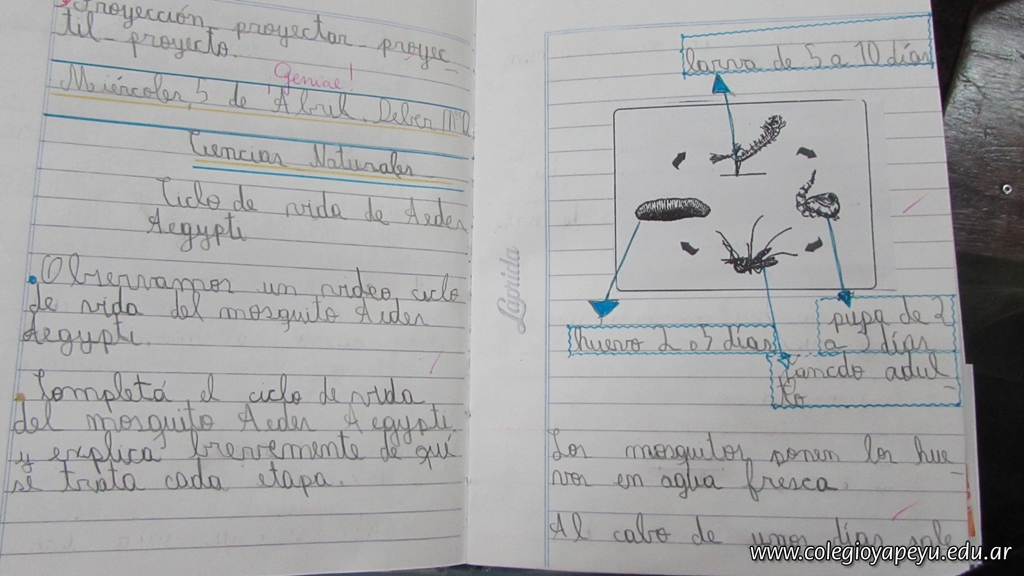 Proyección_proyectar_proyec_
til_proyecto.
¡Genial!
Miércoles, 5 de Abril. Deber Nº
Ciencias Naturales
Ciclo de vida de Aedes
Aegypti
Observamos un video ciclo
de vida del mosquito Aedes
Aegypti.
Completá el ciclo de vida
del mosquito Aedes Aegypti
y explica brevemente de qué
se trata cada etapa.
Laprida
larva de 5 a 10 días
huevo 2 a 5 días
pupa de 2
a 3 días
Zancdo adul-
to
Los mosquitos ponen los hue_
vos en agua fresca.
Al cabo de unos días sale
www.colegioyapeyu.edu.ar